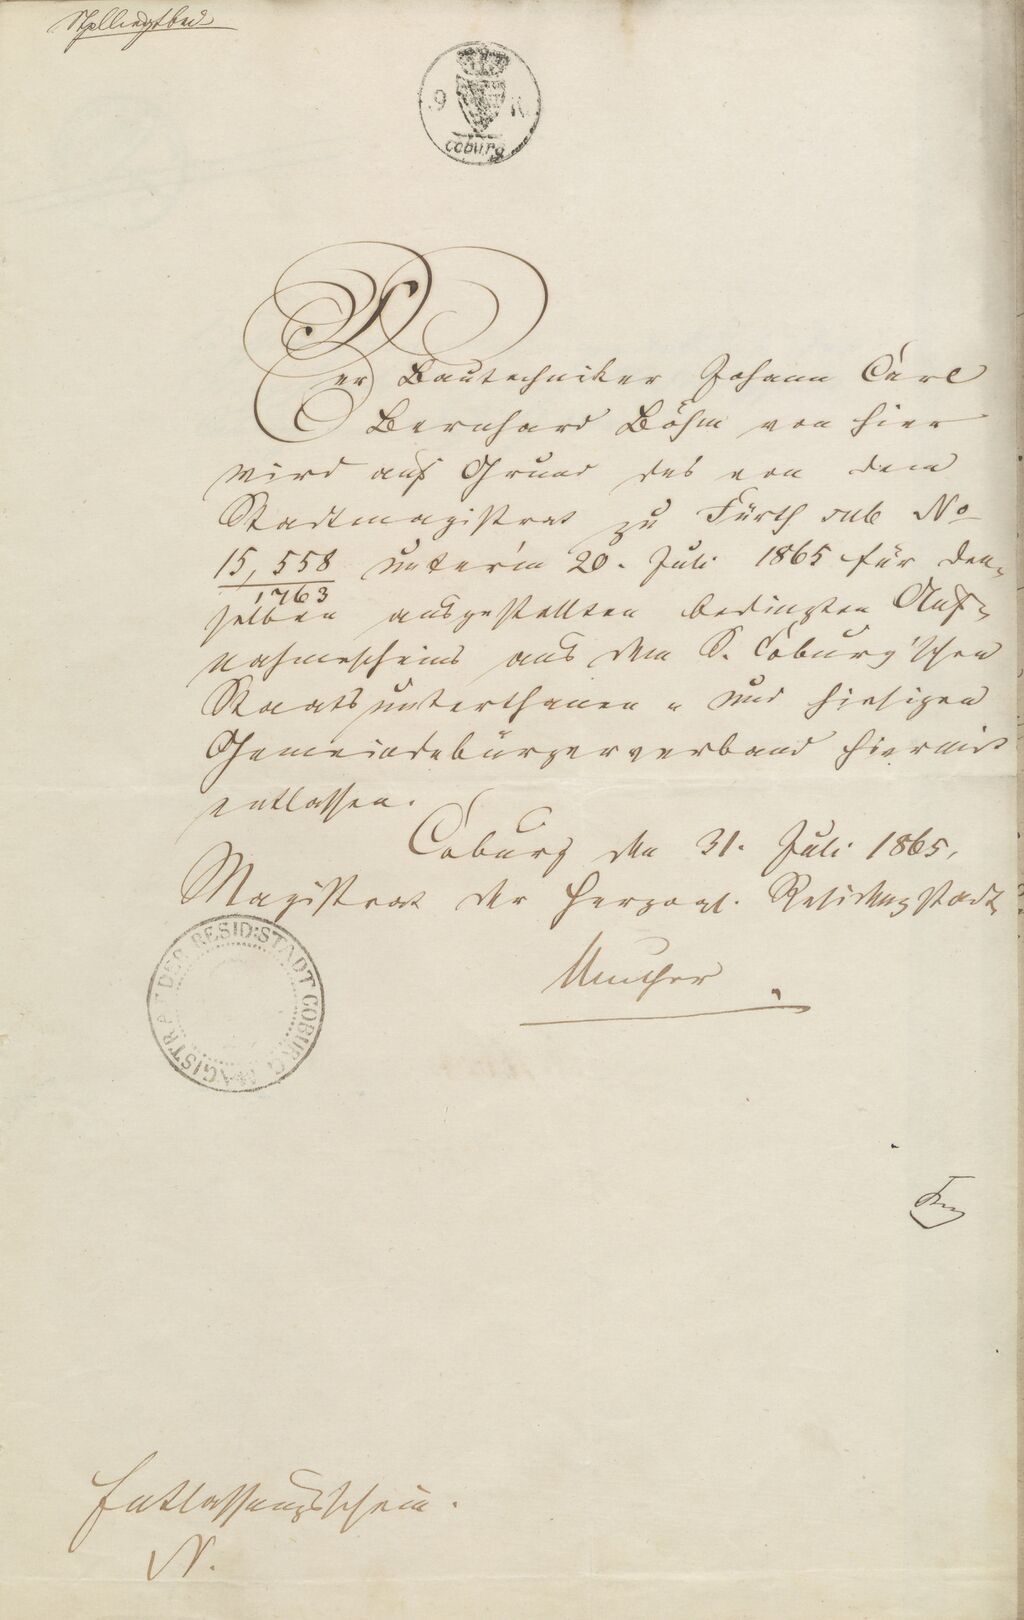 9 K.
Coburg
Der Bautechniker Johann Carl
Bernhard Böhm von hier
wird auf Grund des von dem
Stadtmagistrat zu Fürth sub No
15,558/1763 unterm 20. Juli 1865 für den-
selben ausgestellten bedingten Auf-
nahmescheins aus dem S. Coburg'schen
Staatsunterthanen- und hiesigen
Gemeindebürgerverband hiermit
entlassen.
Coburg den 31. Juli 1865.
Magistrat der Herzogl. Residenzstadt
MAGISTRAT DER RESID:STADT COBURG
Muther
Entlassungsschein.
N.